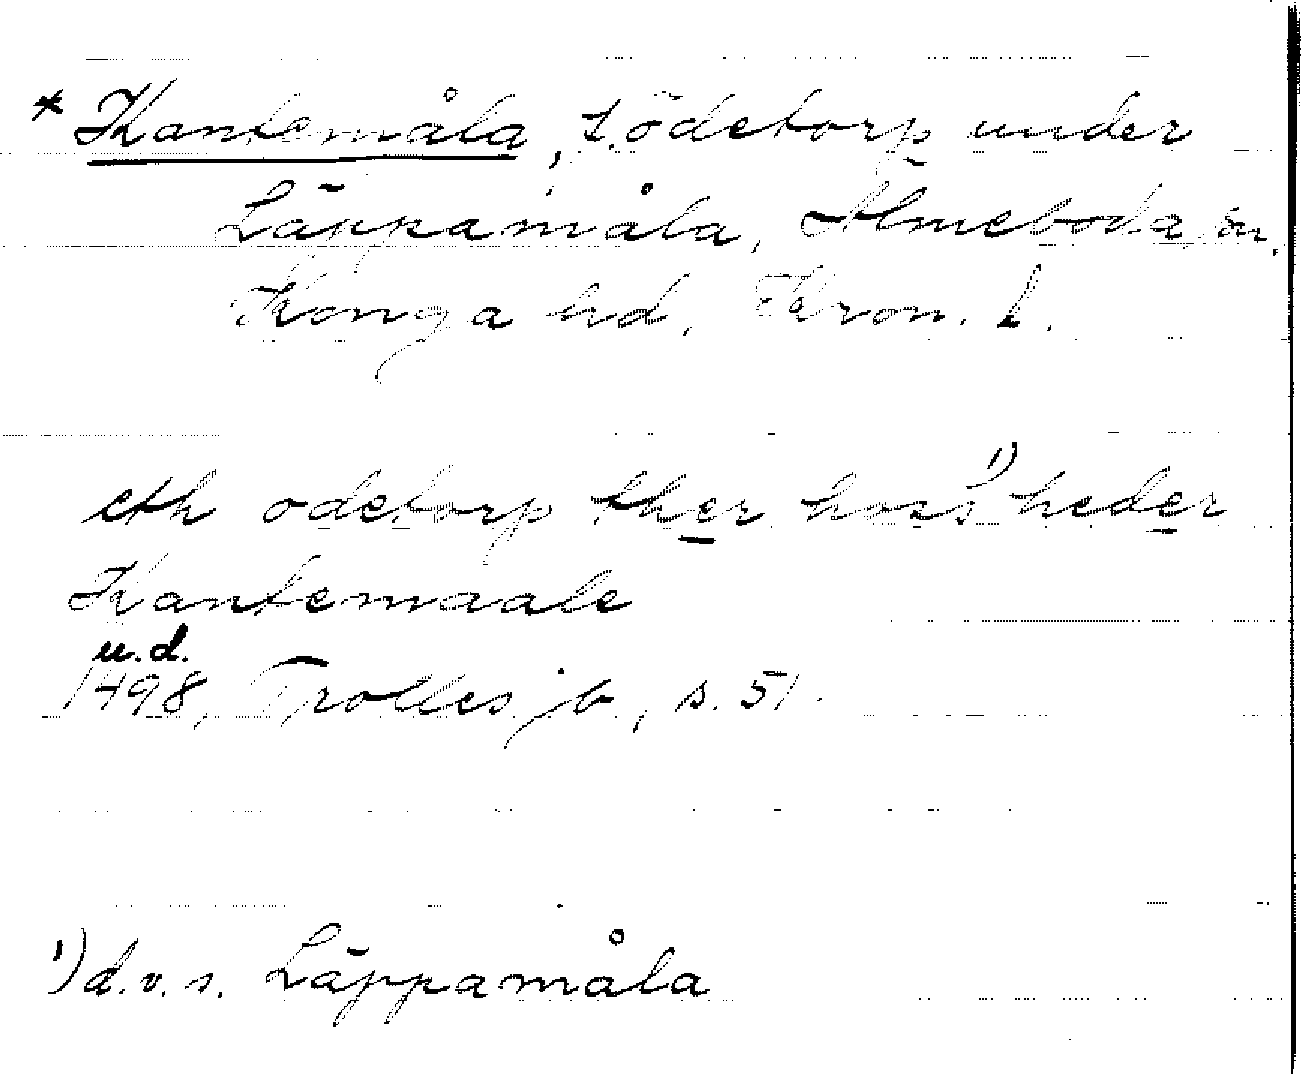 * Kantemåla, f. ödetorp under
Läppamåla, Älmeboda sn,
Konga hd, Kron. l.
eth odetorp ther hoss¹⁾ heder
Kantemaale
u.d.
1498, Trolles jb, s. 51.
¹⁾ d.v.s. Läppamåla